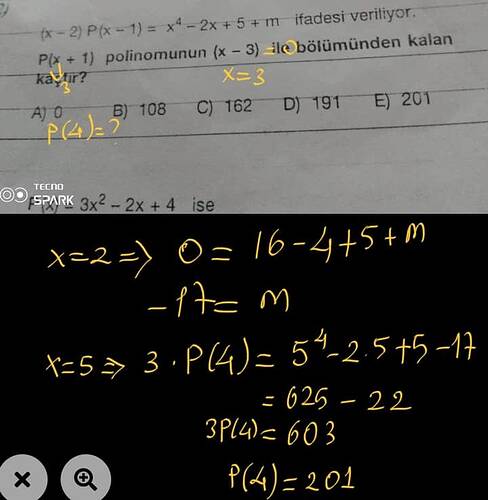 (x − 2) P(x − 1) = x⁴ − 2x + 5 + m ifadesi veriliyor.
P(x + 1) polinomunun (x − 3) = 0 ile bölümünden kalan
3
x=3
A) 0 B) 108 C) 162 D) 191 E) 201
P(4)=?
TECNO
SPARK
= 3x² − 2x + 4 ise
x=2 => 0 = 16-4+5+m
-17= m
x=5 => 3 . P(4) = 5⁴-2.5+5-17
= 625 - 22
3P(4)= 603
P(4)=201